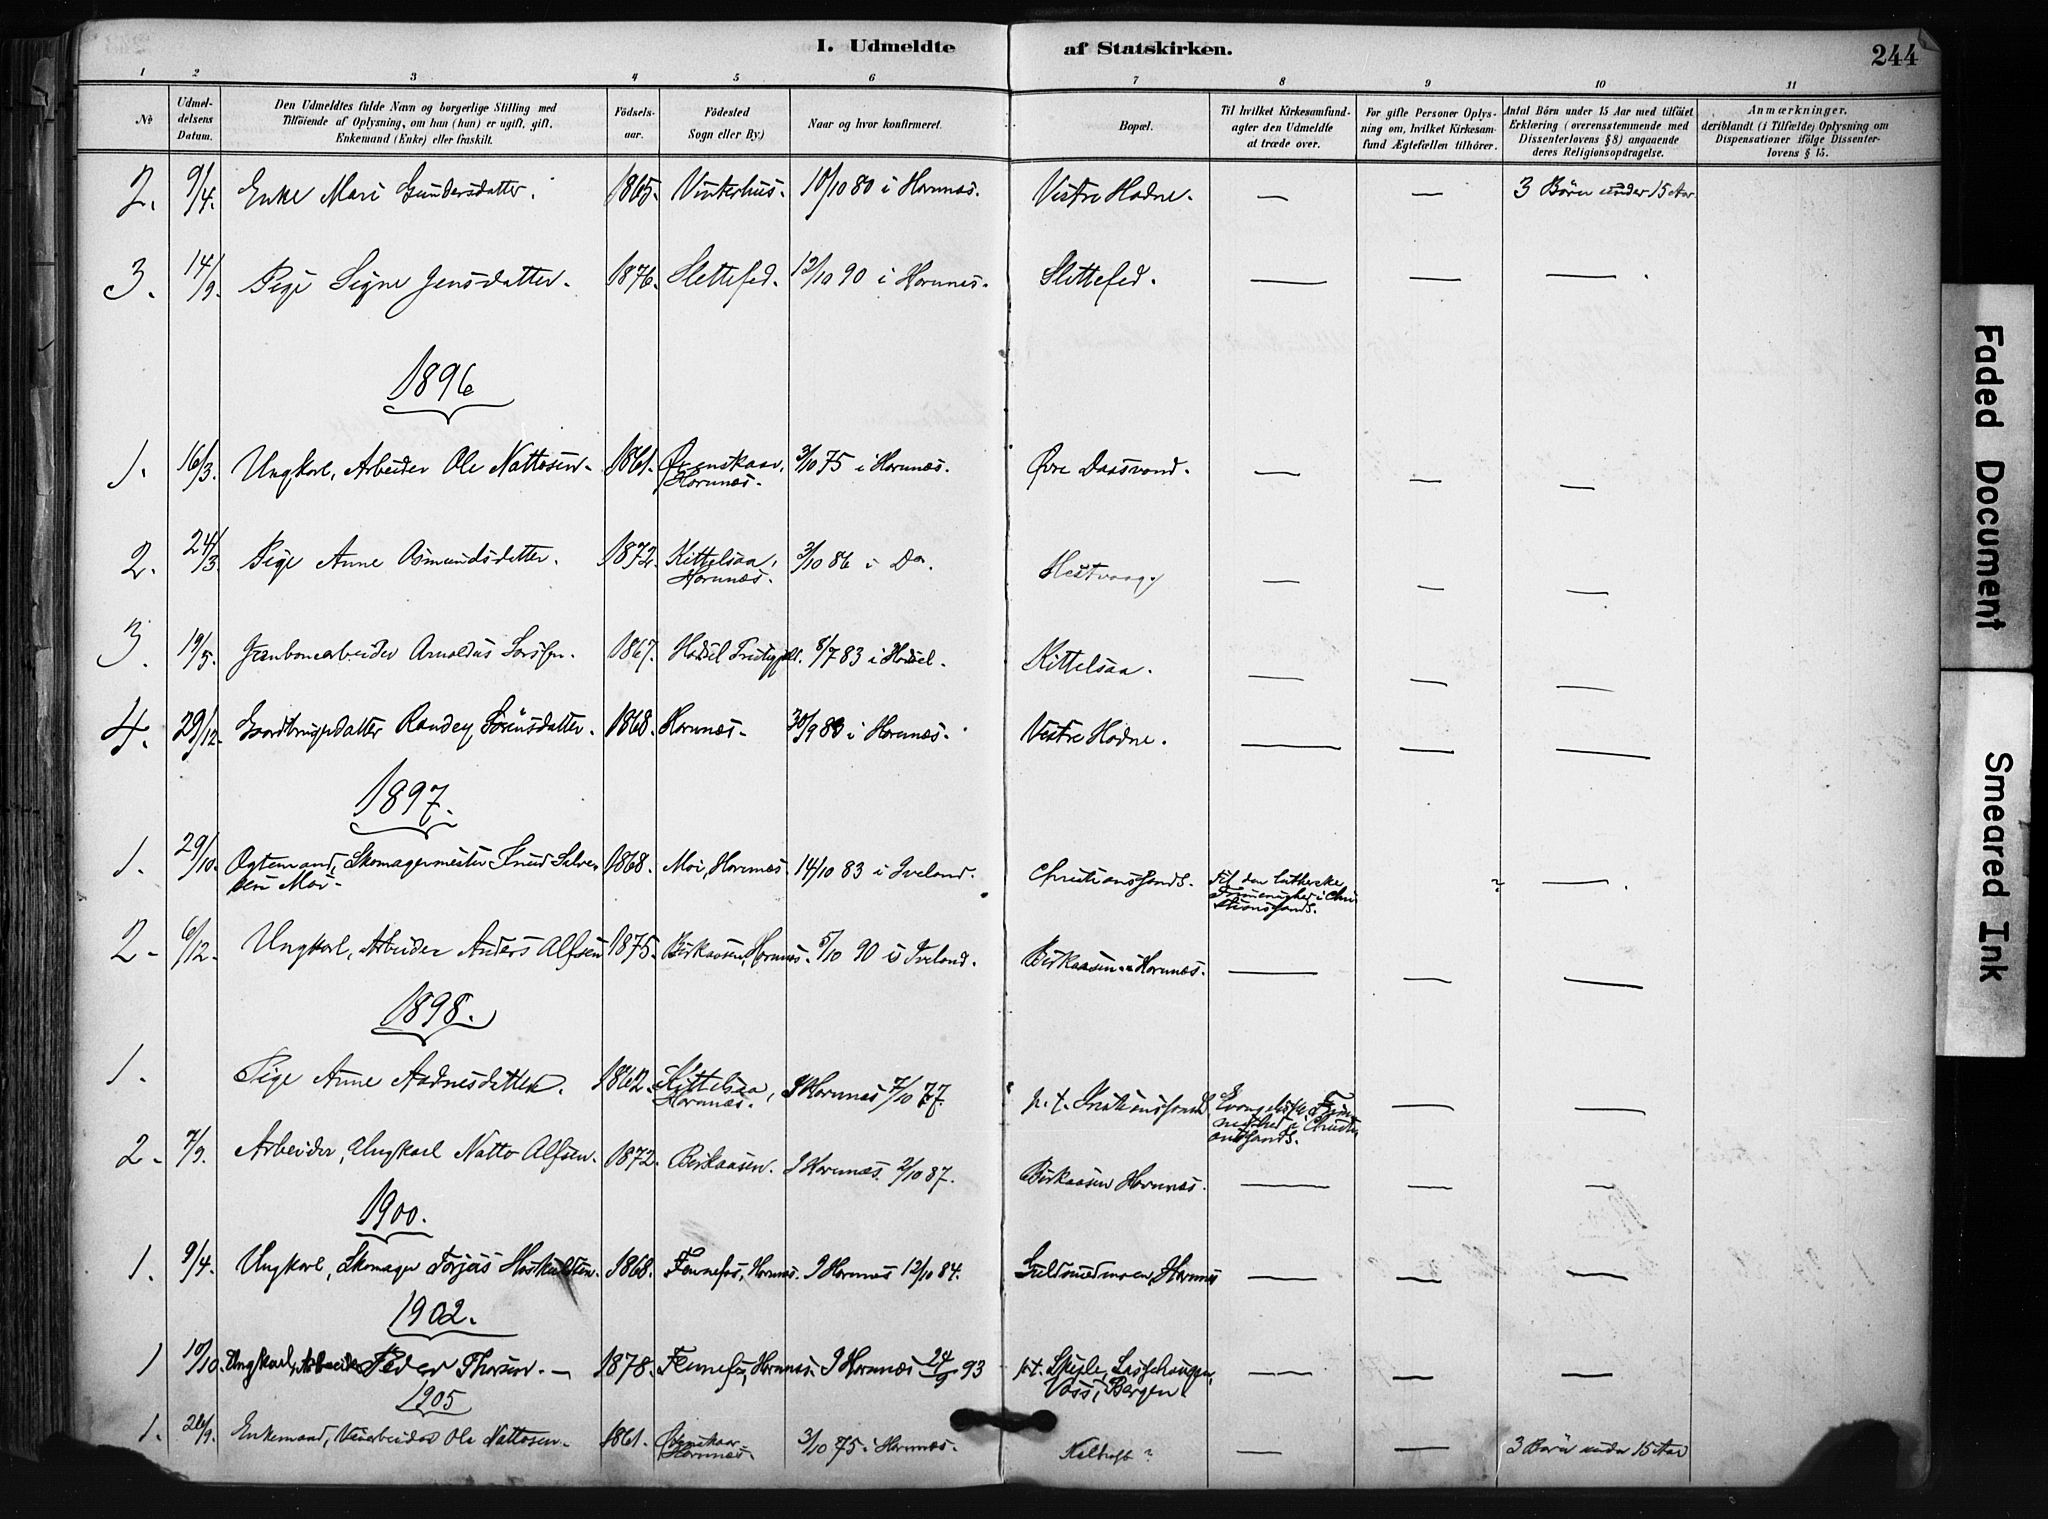 I. Udmeldte af Statskirken. 244
1 2 3 4 5 6 7 8 9 10 11
No Udmeldelsens Datum. Den Udmeldtes fulde Navn og borgerlige Stilling med Tilföiende af Oplysning, om han (hun) er ugift, gift, Enkemand (Enke) eller fraskilt. Födselsaar. Födested (Sogn eller By.) Naar og hvor konfirmeret. Bopæl. Til hvilket Kirkesamfund agter den Udmeldte at træde over. For gifte Personer Oplysning om, hvilket Kirkesamfund Ægtefællen tilhörer. Antal Börn under 15 Aar med tilföiet Erklæring (overensstemmende med Dissenterlovens § 8) angaaende deres Religionsopdragelse. Anmærkninger, deriblandt (i Tilfælde) Oplysning om Dispensationer ifölge Dissenterlovens § 15.
2. 9/4. Enke Mari Gundersdatter. 1865. Vinterhus. 10/10 80 i Hornnæs. Vestre Hodne. — — 3 Börn under 15 Aar.
3. 14/9. Pige Signe Jensdatter. 1876. Slettefed. 12/10 90 i Hornnes. Slettefed. — — —
1896
1. 16/3. Ungkarl, Arbeider Ole Nattosen. 1861. Øvenskaar, 3/10 75 i Hornnæs. Øvre Daasvand. — — —
Hornnæs.
2. 24/3. Pige Anne Osmundsdatter. 1872. Kittelsaa, 3/10 86 i Do. Hestvaag. — — —
Hornnæs.
3. 19/5. Arnoldus 1867. Hadsel 8/7 83 i Hadsel. Kittelsaa. — — —
4. 29/12. Randey Sörensdatter. 1868. Hornnæs. 30/9 83 i Hornnæs. Vestre Hodne. — — —
1897.
1. 29/10. Skomagermester Knud Salve- 1868. Moi, Hornnæs. 14/10 83 i Iveland. Christianssand. Til den lutherske — —
sen Moi. Frimenighed i Chri-
stianssand.
2. 6/12. Ungkarl, Arbeider Anders Alfsen 1875. Birkaasen, Hornnæs. 5/10 90 i Iveland. Birkaasen i Hornnæs. — — —
1898.
1. Pige Anne Aadnesdatter. 1862. Kittelsaa, I Hornnæs 7/10 77. p.t. Kristianssand. Evangelisk — —
Hornnæs.
2. 7/9. Arbeider, Ungkarl Natto Alfsen. 1872. Birkaasen. I Hornnæs. 2/10 87. Birkaasen Hornnæs. — — —
1900.
1. 9/4. Ungkarl, Skomager Torjus Hoskuldsen. 1868. Fennefos, Hornnæs. I Hornnæs 12/10 84. Guldsmedmoen, Hornnes — — —
1902.
1 10/10. Ungkarl, Arbeider Peder Thorsen. — 1878. Fennefos, Hornnæs. I Hornnæs 24/9 93 p.t.
Voss, Bergen — — —
1905
1. 26/9. Enkemand, Ole Nattosen. 1861. Øvenskaar 3/10 75 i Hornnæs. — — 3 Börn under 15 Aar
Hornnæs.
Faded Document
Smeared Ink